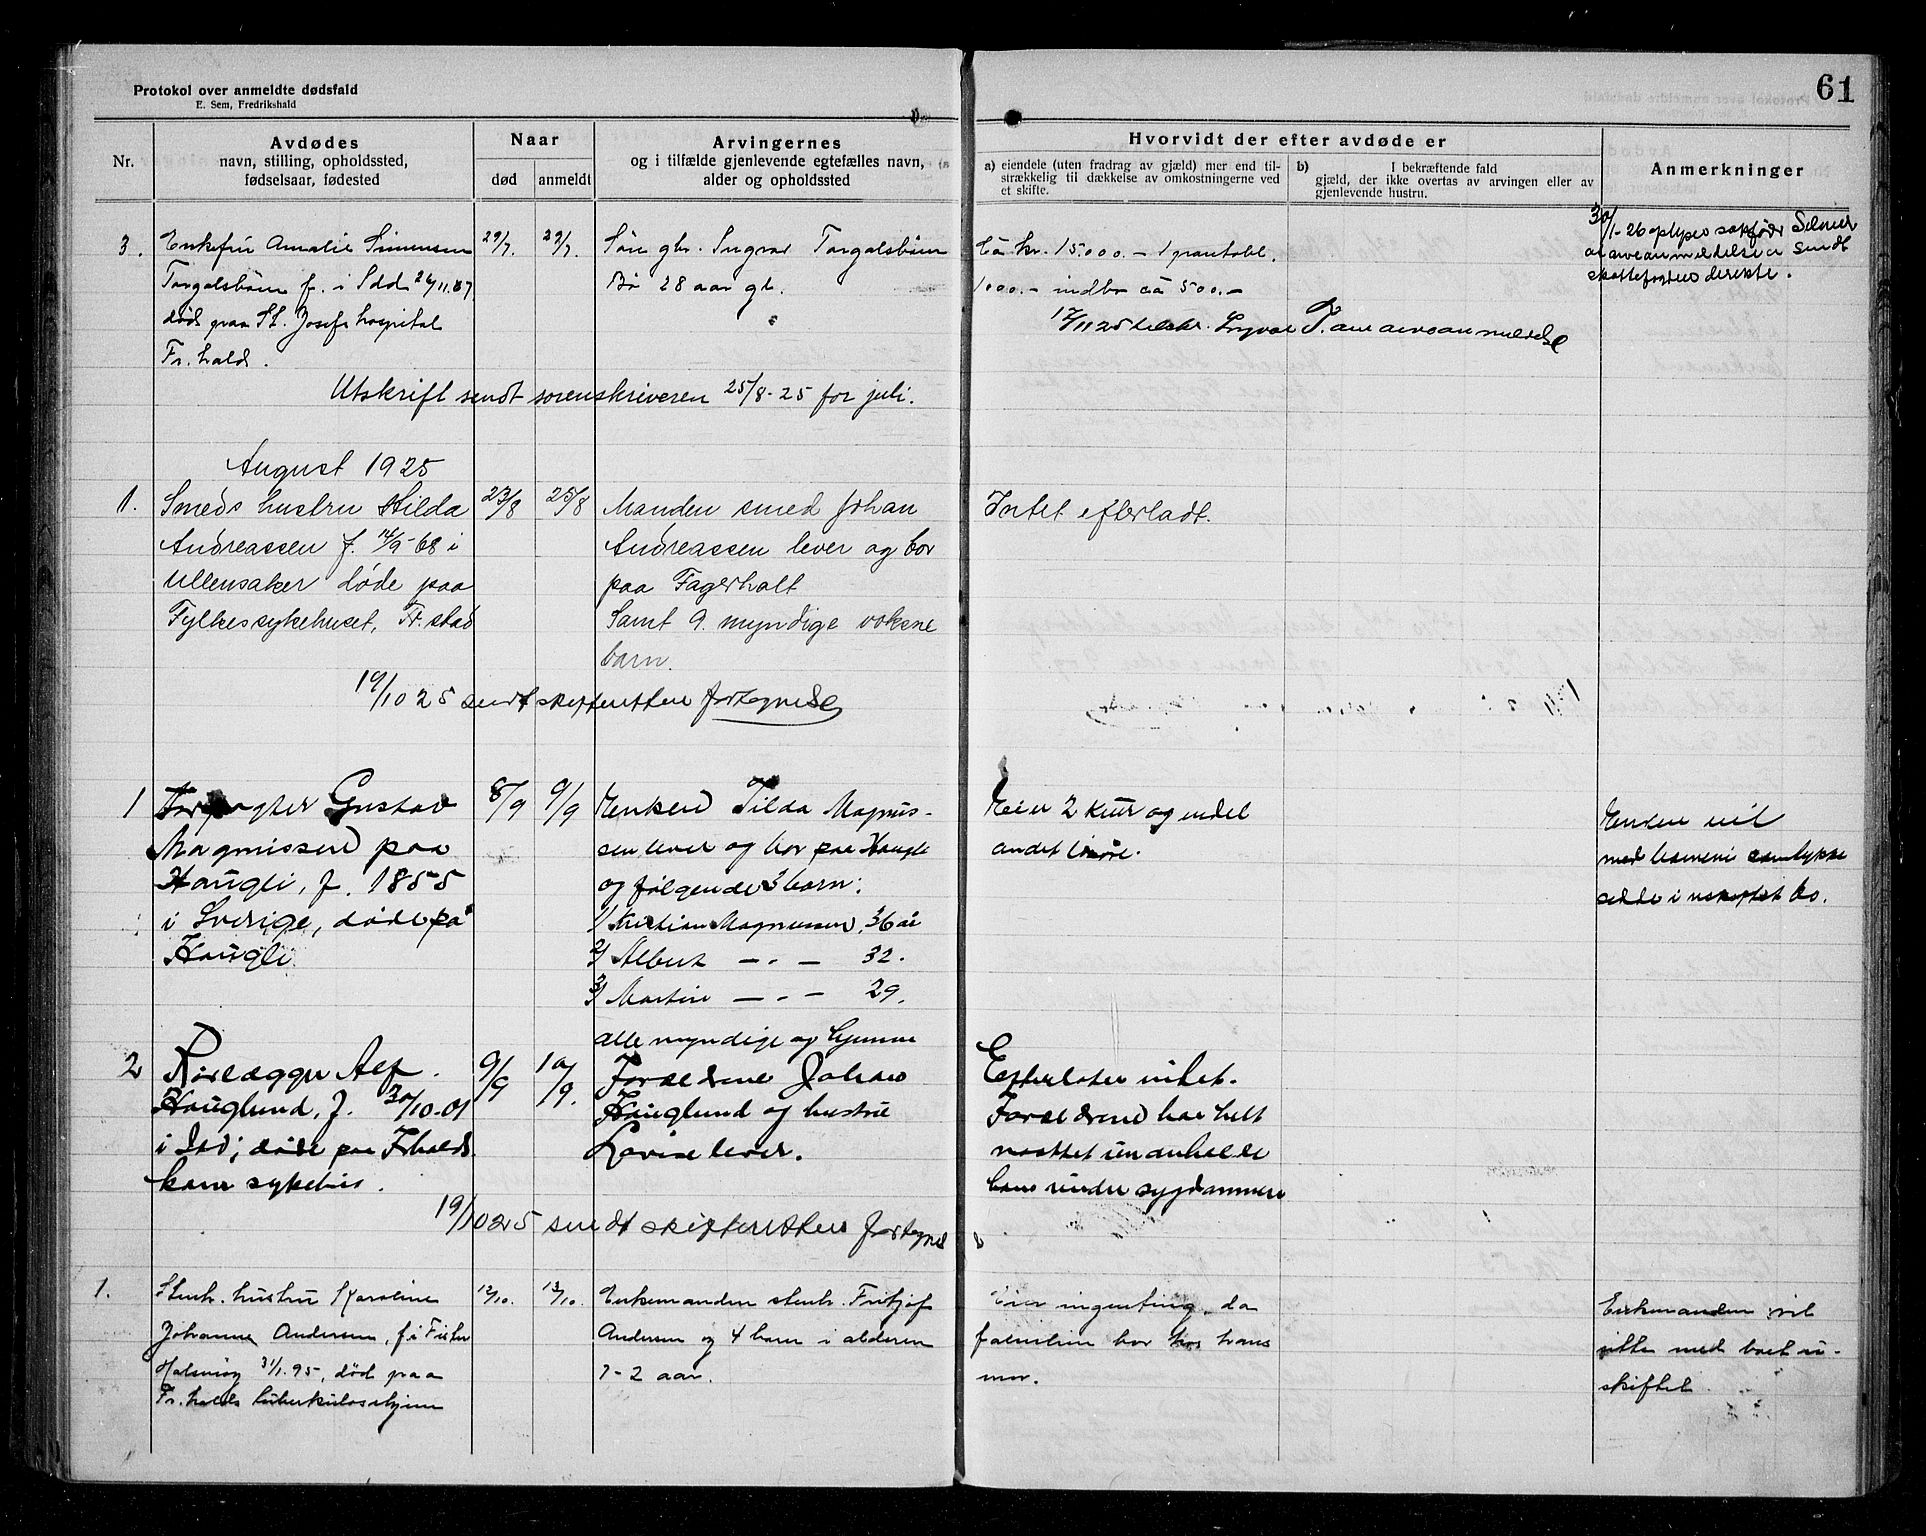 61
Protokol over anmeldte dødsfald
E. Sem, Fredrikshald
Nr.
Avdødes
navn, stilling, opholdssted,
fødselsaar, fødested
Naar
død
anmeldt
Arvingernes
og i tilfælde gjenlevende egtefælles navn,
alder og opholdssted
Hvorvidt der efter avdøde er
a) eiendele (uten fradrag av gjæld) mer end til-
strækkelig til dækkelse av omkostningerne ved
et skifte.
b) I bekræftende fald
gjæld, der ikke overtas av arvingen eller av
gjenlevende hustru.
Anmerkninger
3.
Enkefru Amalie Simensen
Torgalsbøen f. i Idd 26/11.
død paa St. Josefs hospital
Fr.hald.
29/7.
29/7.
Søn gbr. Ingvar Torgalsbøen
28 aar gl.
Ca kr. 15.000.- 1 prantobl.
1000.- indbo ca 500.-
17/11 25 Ingvar T. om arveanmeldelse
30/1-26 oplyses sakfører
at arveanmeldelse er sendt
skattefogden direkte.
Utskrift sendt sorenskriveren 25/8-25 for juli.
August 1925
1.
Smeds hustru Hilda
Andreassen f. 14/9-68 i
Ullensaker døde paa
Fylkessykehuset, Fr.stad
23/8
25/8
Manden smed Johan
Andreassen lever og bor
paa Fagerholt
Samt 9. myndige voksne
barn.
Intet efterladt.
19/10 25 sendt skifteretten fortegnelse
1
Forpagter Gustav
Magnussen paa
Haugli, f. 1855
i Sverige, døde på
Haugli.
8/9
9/9
Enken Tilda Magnus-
sen lever og bor paa Haugli
og følgende 3 barn:
1) Kristian Magnussen, 36 år
2) Albert — „ — 32.
3) Martin — „ — 29.
alle myndige og hjemme
Eier 2 kuer og endel
andet løsøre.
Enken vil
med barnene samtykke
sidde i uskiftet bo.
2
Rørlægger Alf
Hauglund, f. 30/10-01
i Idd; døde paa Frhalds
kom sykehus.
9/9
10/9.
Forældrene Johan
Hauglund og hustru
Lovise lever.
Efterlater intet.
Forældrene har helt
maattet underholde
hans under sygdommen
19/10 25 sendt skifteretten fortegnelse
1.
Stenh. hustru Karoline
Johanne Andersen, f. i
31/1.95, død paa
Fr.halds tuberkulosehjem
12/10.
13/10.
Enkemanden stenh. Fritjof
Andersen og 4 barn i alderen
7-2 aar.
Eier ingenting, da
familien bor hos hans
mor.
Enkemanden vil
sitte med boet u-
skiftet.